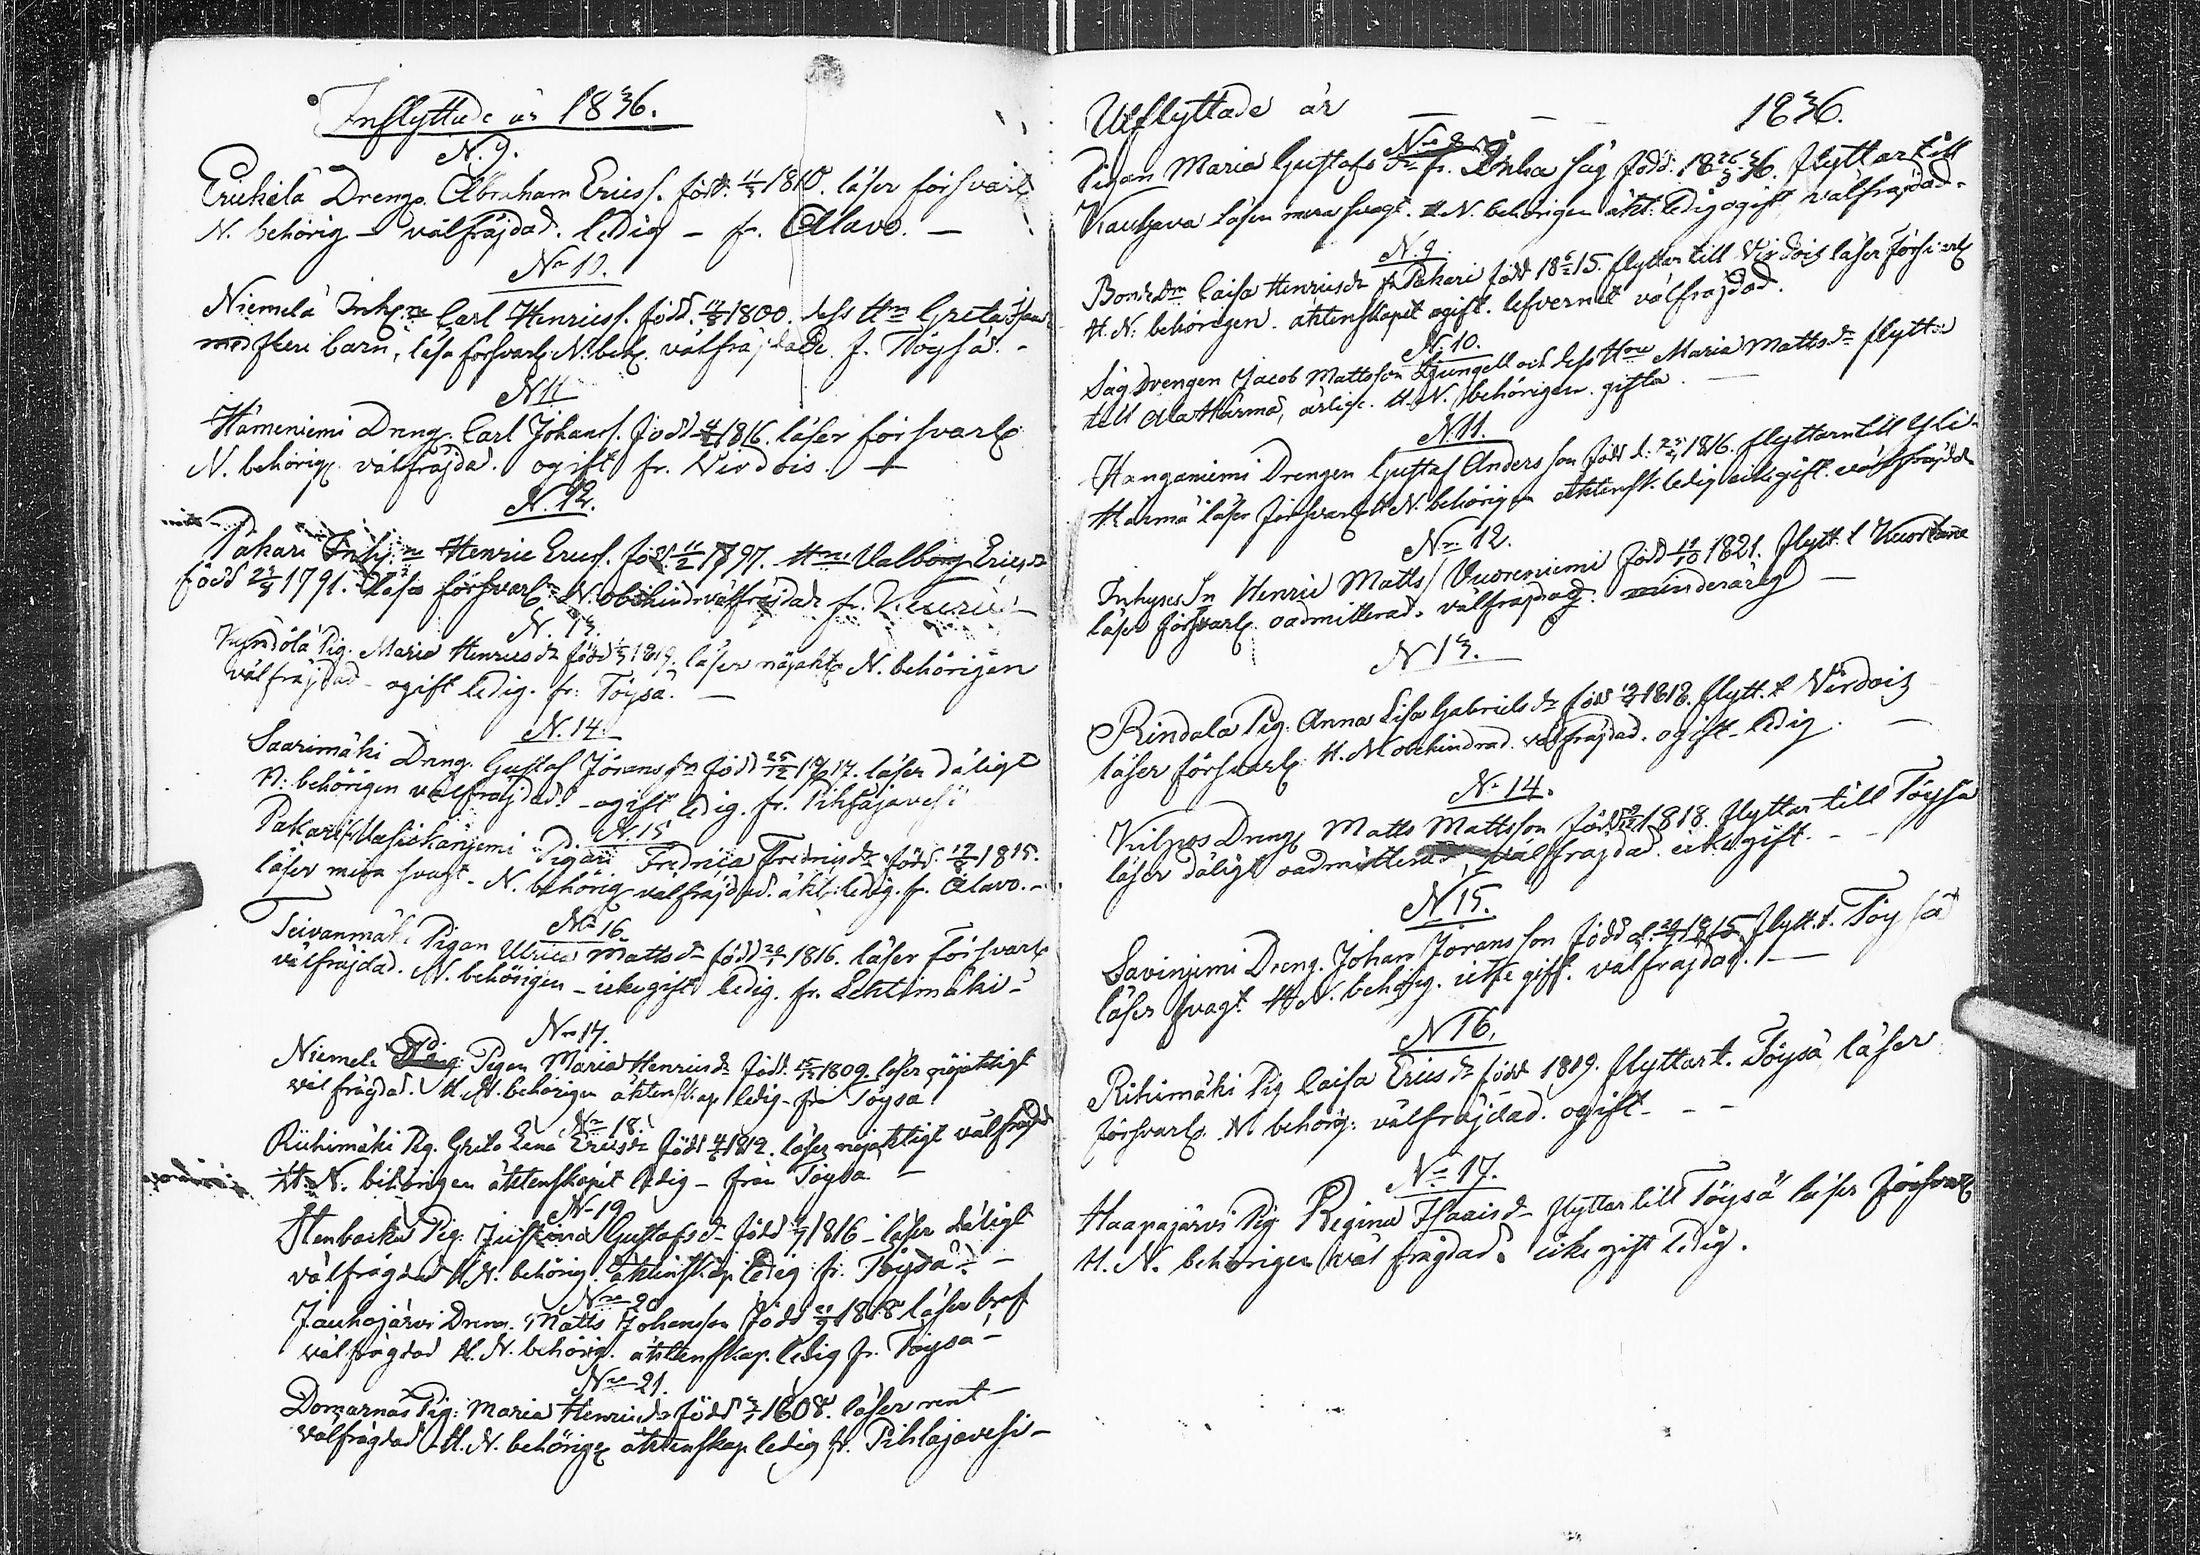 Inflyttade år 1836.
N. 9.
Erickelä Dreng. Abraham Ericss. född. 11/3 1810. läser försvarl.
N. behörig – välfräjdad. ledig – fr. Alavo. –
No 10.
Niemelä Inhys Carl Henricss. född. 1800. dess Hu Greta
med flere barn, läsa försvarl. N. beh. välfräjdade. f. Töysä. –
N 11
Hämeniemi Dräng. Carl Johanss. född 1816. läser försvarl.
N. behörig. välfräjdad. ogift fr. Virdois. –
N. 12.
Pakari Inhys Henric Ericss. född 11/2 1797. Hu Valborg Ericsdr
född 1791. läser försvarl. N. obehindr. välfräjdade fr.
N. 13.
Pig. Maria Henricsdr född 1819. läser nöjakt. N. behörigen
välfräjdad – ogift ledig. fr. Töysä. –
N. 14.
Saarimäki Dräng. Gustaf Jöransson född 25/12 1817. läser dåligt
N. behörigen välfräjdad. – ogift ledig. fr. Pihlajavesi
N. 15
Pakari Pigan Fredrica Fredricsdr född. 12/8 1815.
läser mera svagt. N. behörig välfräjdad. äkt. ledig. fr. Alavo. –
No 16.
Teivanmäki Pigan Ulrica Mattsdr född 20/1 1816. läser försvarl.
välfräjdad. N. behörigen – icke gift ledig. fr. Lehtimäki –
No 17.
Niemelä Pigan Maria Henricsdr född. 1809. läser nöjaktigt
välfrägdad. H. N. behörigen äktenskap ledig – fr Töysä
No 18.
Riihimäki Pig. Greta Lena Ericsdr född 1812. läser nöjaktigt välfräjd
H. N. behörigen äktenskapet ledig – från Töysä –
N 19
Stenbacka Pig: Justina Gustafsdr född 1816 – läser dåligt
välfrägdad H.N. behörig. äktenskap ledig fr. Töysä –
No 20
Jauhojärvi Dreng. Matts Johansson född 1818 läser braf
välfrägdad H. N. behörig. äktenskap. ledig fr. Töysä –
No 21.
Domarnäs Pig: Maria Henricsdr född 1808. läser rent –
välfrägdad – H. N. behörig äktenskap ledig fr. Pihlajavesi –
Utflyttade år – – – 1836.
No 8
Pigan Maria Gustafsdr fr. Inha Såg född: flyttar till
Kauhava läser mera svagt. H N. behörigen äkt. ledig ogift välfräjdad.
N. 9.
Bondedn Caisa Henricsdr fr Pakari född 1815. flyttar till Virdois läser försvarl.
H. N. behörigen. äktenskapet ogift. lefvernet välfräjdad.
N. 10.
Såg Drengen Jacob Mattsson Ljungell och dess Hu Maria Mattsdr flytta
till Ala Härmä, ärlige. H. N. behörigen. gifta. –
N. 11.
Hanganiemi Drengen Gustaf Andersson född d: 1816. flyttar till Yli-
Härmä läser försvarl. H N. behörigen äktensk. ledig icke gift. välfräjdad
No 12.
Inhyses Sn Henric Matts. Vuoreniemi född 19/10 1821. flytt. t Kuortane
läser försvarl. oadmitterad. välfräjdad. minderårig –
N 13.
Rindala Pig. Anna Lisa Gabrielsdr född 1818. flytt. t Virdois
läser försvarl. H. N obehindrad. välfräjdad. ogift – ledig. –
No 14.
Dreng. Matts Mattsson född 1818. flyttar till Töysä
läser dåligt oadmitterad, välfräjdad. icke gift. – –
N 15.
Savinjemi Dreng. Johan Jöransson född d. 1815 flytt. t. Töysä
läser svagt H N. behörig. icke gift. välfräjdad. –
N 16.
Riihimäki Pig Caisa Ericsdr född 1819. flyttar t. Töysä läser
försvarl. N behörig: välfräjdad. ogift – – –
No 17.
Haapajärvi Pig Regina Isaacsdr flyttar till Töysä läser försvarl.
H. N. behörigen välfrägdad. icke gift ledig.